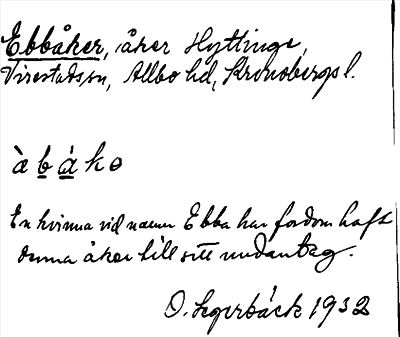 Ebbåker, åker Hyttinge,
Virestads sn, Allbo hd, Kronobergs l.
à b á k o
En kvinna vid namn Ebba har fordom haft
denna åker till sitt undantag.
O. 1932